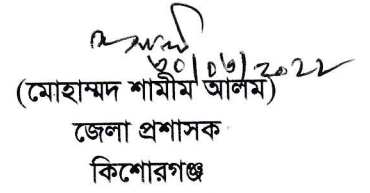 ২০/০৬/২০২২
(মোহাম্মদ শামীম আলম)
জেলা প্রশাসক
কিশোরগঞ্জ